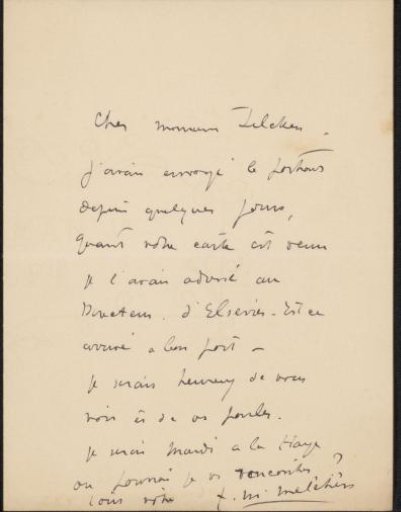 Cher monsieur Zilcken.
j'avais envoyé le portrait
depuis quelques jours,
quant votre carte est venu
je l'avais adressé au
Directeur. d'Elsevier. Est ce
arrivé a bon port —
je serais heureux de vous
voir et de vs parler.
je serai mardi a la Haye
ou pourrai je vs rencontrer?
tous votre F. M. Melchers